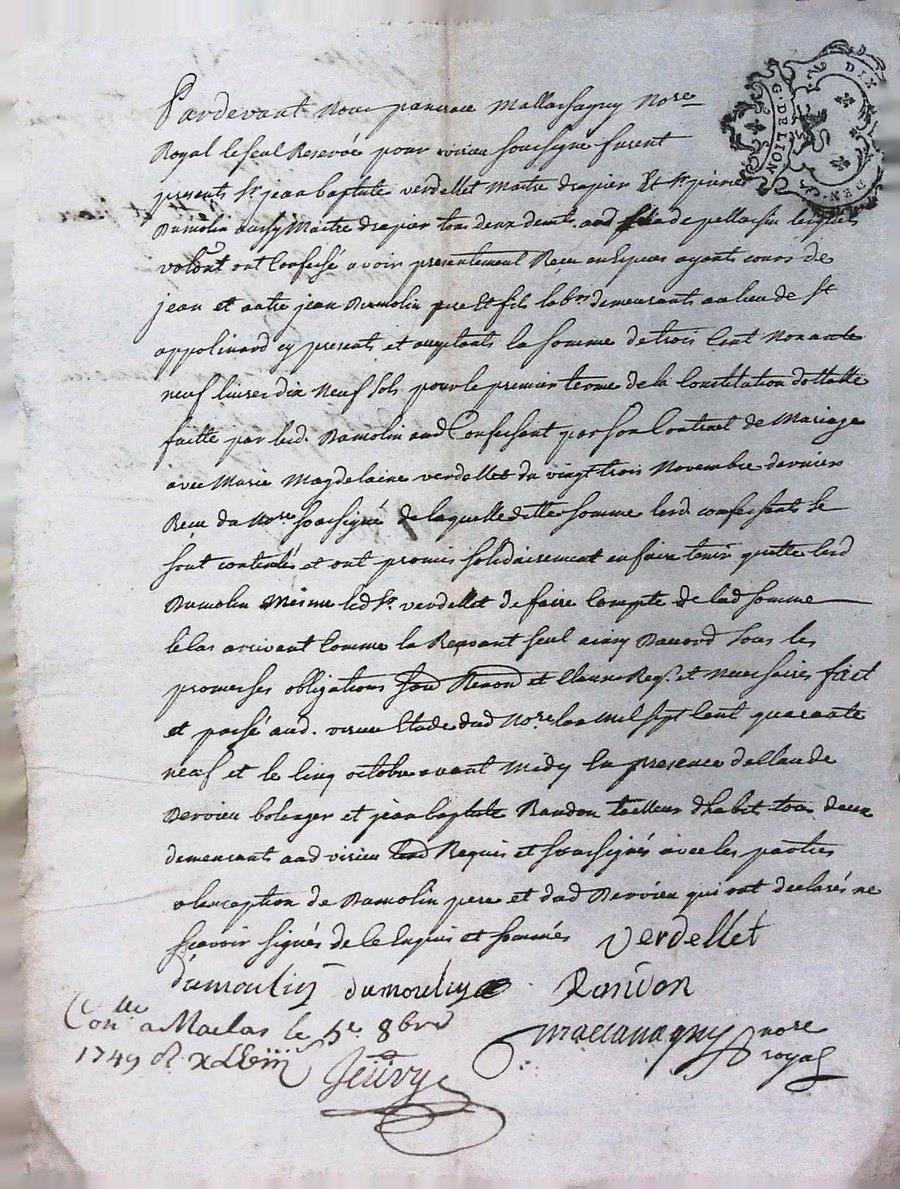 Pardevant Nous pancrace Mallassagny Nore
Royal le seul Reservé pour virieu soussigné furent
presents Sr jean baptiste verdellet Maitre drapier Et Sr pierre
Dumolin aussy Maitre drapier tous deux demts aud de pellussin lesquels
volont ont Confessé avoir presentement Reçu en Especes ayants cours de
jean et autre jean Dumolin pere Et fils labrs demeurants au lieu de St
appolinard cy presents et acceptants la somme de trois Cent Nonante
neuf livres dix Neuf sols pour le premier terme de la Constitution dottalle
faitte par led. Dumolin aud Confessant par son Contract de Mariage
avec Marie Magdelaine verdellet du vingt trois Novembre dernier
Reçu du Nore soussigné de laquelle ditte somme lesd confessants se
sont contentés et ont promis solidairement en faire tenir quitte lesd
Dumolin Mesme led Sr verdellet de faire Compte de lad somme
le Cas arrivant Comme la Recevant seul ainsy Daccord sous les
promesses obligations Renon et Clauses Reqs et Necessaires fait
et passé aud. virieu Etude dud Nore lan Mil sept Cent quarante
neuf et le Cinq octobre avant Midy En presence de Claude
Dervieu bolanger et jean baptiste Randon tailleur dhabit tous deux
demeurants aud virieu Requis et soussignés avec les parties
a lexception de Dumolin pere et dud Dervieu qui ont declarés ne
sçavoir signés de Ce Enquis et sommés verdellet
dumoulin dumoulin Randon
Conllé a Maclas le 5e 8bre
1749 R.
mallassagny nore
royal
G. DE LION
DIX DEN.